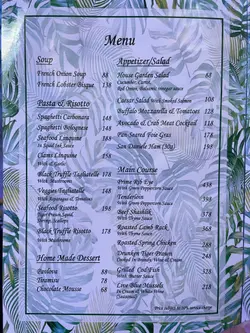 Menu
Soup
French Onion Soup 88
French Lobster Bisque 138
Pasta & Risotto
Spaghetti Carbonara 148
Spaghetti Bolognese 148
Seafood Linguine 188
In Squid Ink Sauce
Clams Linguine 158
With
Black Truffle Tagliatelle 118
With Mushrooms
Veggies Tagliatelle 148
With Asparagus & Tomatoes
Seafood Risotto 198
Black Truffle Risotto 178
With Mushrooms
Home Made Dessert
Pavlova 88
Tiramisu 78
Chocolate Mouse 68
Appetizer/Salad
House Garden Salad 68
Cucumber, Carrot,
Red Onion, Balsamic vinegar sauce
Caesar Salad With Smoked Salmon 108
Buffalo Mozzarella & Tomatoes 128
Avocado & Crab Meat Cocktail 118
Pan-Seared Foie Gras 188
San Daniele Ham (30g) 198
Main Course
Prime Rib Eye
With Green Peppercorn Sauce
Tenderloin
With Green Peppercorn Sauce
Beef Shashlik
With Thyme Sauce
Roasted Lamb Rack
With Thyme Sauce
Roasted Spring Chicken 288
Drunken Tiger Prawn
Grilled Codfish 328
With Butter Sauce
Live Blue Mussels
In Cream & White Wine
(Seasonal)
Price subject to 10% service charge